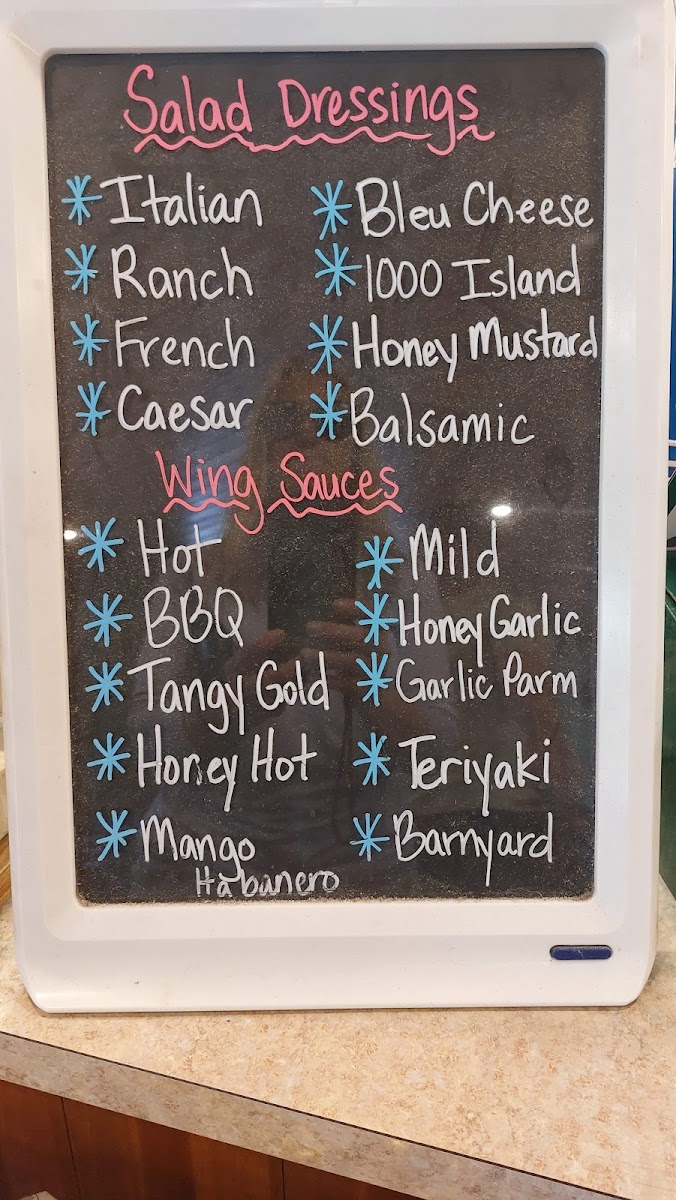 Salad Dressings
* Italian
* Bleu Cheese
* Ranch
* 1000 Island
* French
* Honey Mustard
* Caesar
* Balsamic
Wing Sauces
* Hot
* Mild
* BBQ
* Honey Garlic
* Tangy Gold
* Garlic Parm
* Honey Hot
* Teriyaki
* Mango
Habanero
* Barnyard